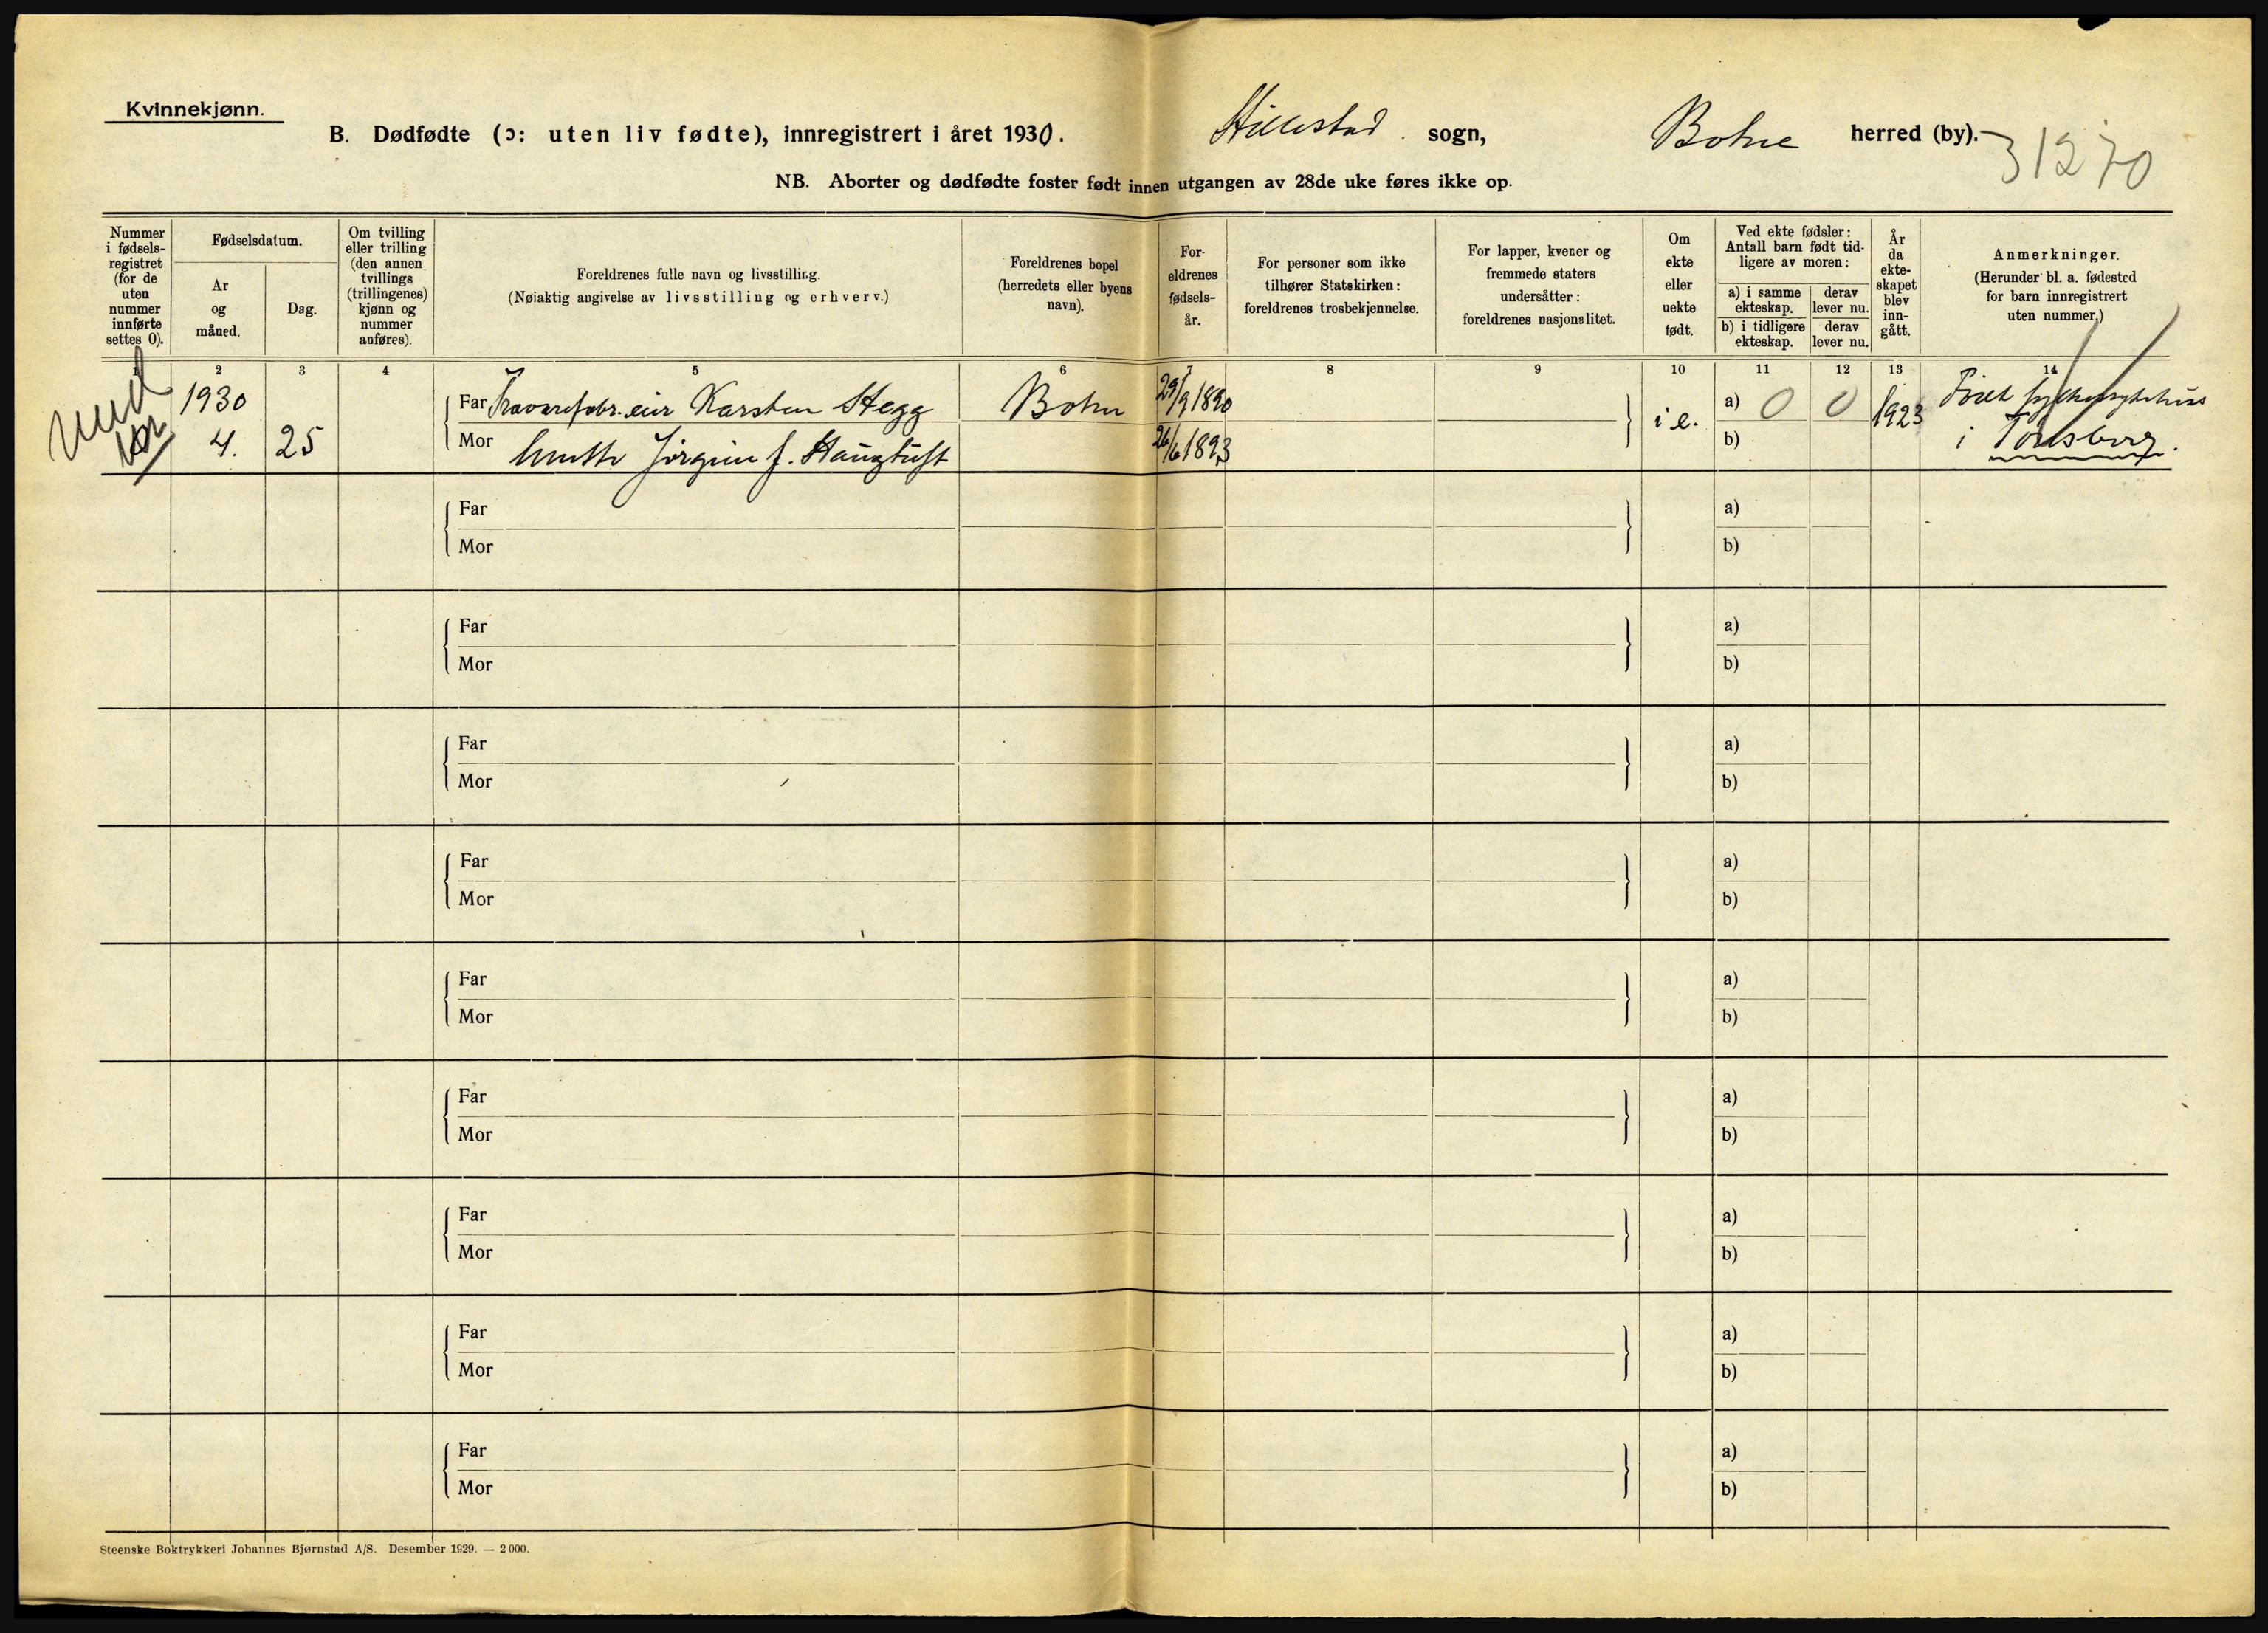 Kvinnekjønn.
B. Dødfødte (ɔ: uten liv fødte), innregistrert i året 1930. Hillestad sogn, Botne herred (by).
31270
NB. Aborter og dødfødte foster født innen utgangen av 28de uke føres ikke op.
Nummer i fødsels-registret (for de uten nummer innførte settes 0).
Fødselsdatum.
År og måned.
Dag.
Om tvilling eller trilling (den annen tvillings (trillingenes) kjønn og nummer anføres).
Foreldrenes fulle navn og livsstilling.
(Nøiaktig angivelse av livsstilling og erhverv.)
Foreldrenes bopel (herredets eller byens navn).
For-eldrenes fødsels-år.
For personer som ikke tilhører Statskirken: foreldrenes trosbekjennelse.
For lapper, kvener og fremmede staters undersåtter: foreldrenes nasjonalitet.
Om ekte eller uekte født.
Ved ekte fødsler: Antall barn født tid-ligere av moren:
a) i samme ekteskap.
derav lever nu.
b) i tidligere ekteskap.
derav lever nu.
År da ekte-skapet blev inn-gått.
Anmerkninger.
(Herunder bl. a. fødested for barn innregistrert uten nummer.)
1 2 3 4 5 6 7 8 9 10 11 12 13 14
1930
4. 25
Far Trævarefabr.eier Karsten Hegg Botne 29/9 1890
Mor Jørgine f. Haugtuft 26/6 1893
i e.
a) 0 0
b)
1923
Født fylkessykehus
i Tønsberg.
Far a)
Mor b)
Far a)
Mor b)
Far a)
Mor b)
Far a)
Mor b)
Far a)
Mor b)
Far a)
Mor b)
Far a)
Mor b)
Far a)
Mor b)
Far a)
Mor b)
Steenske Boktrykkeri Johannes Bjørnstad A/S. Desember 1929. — 2000.